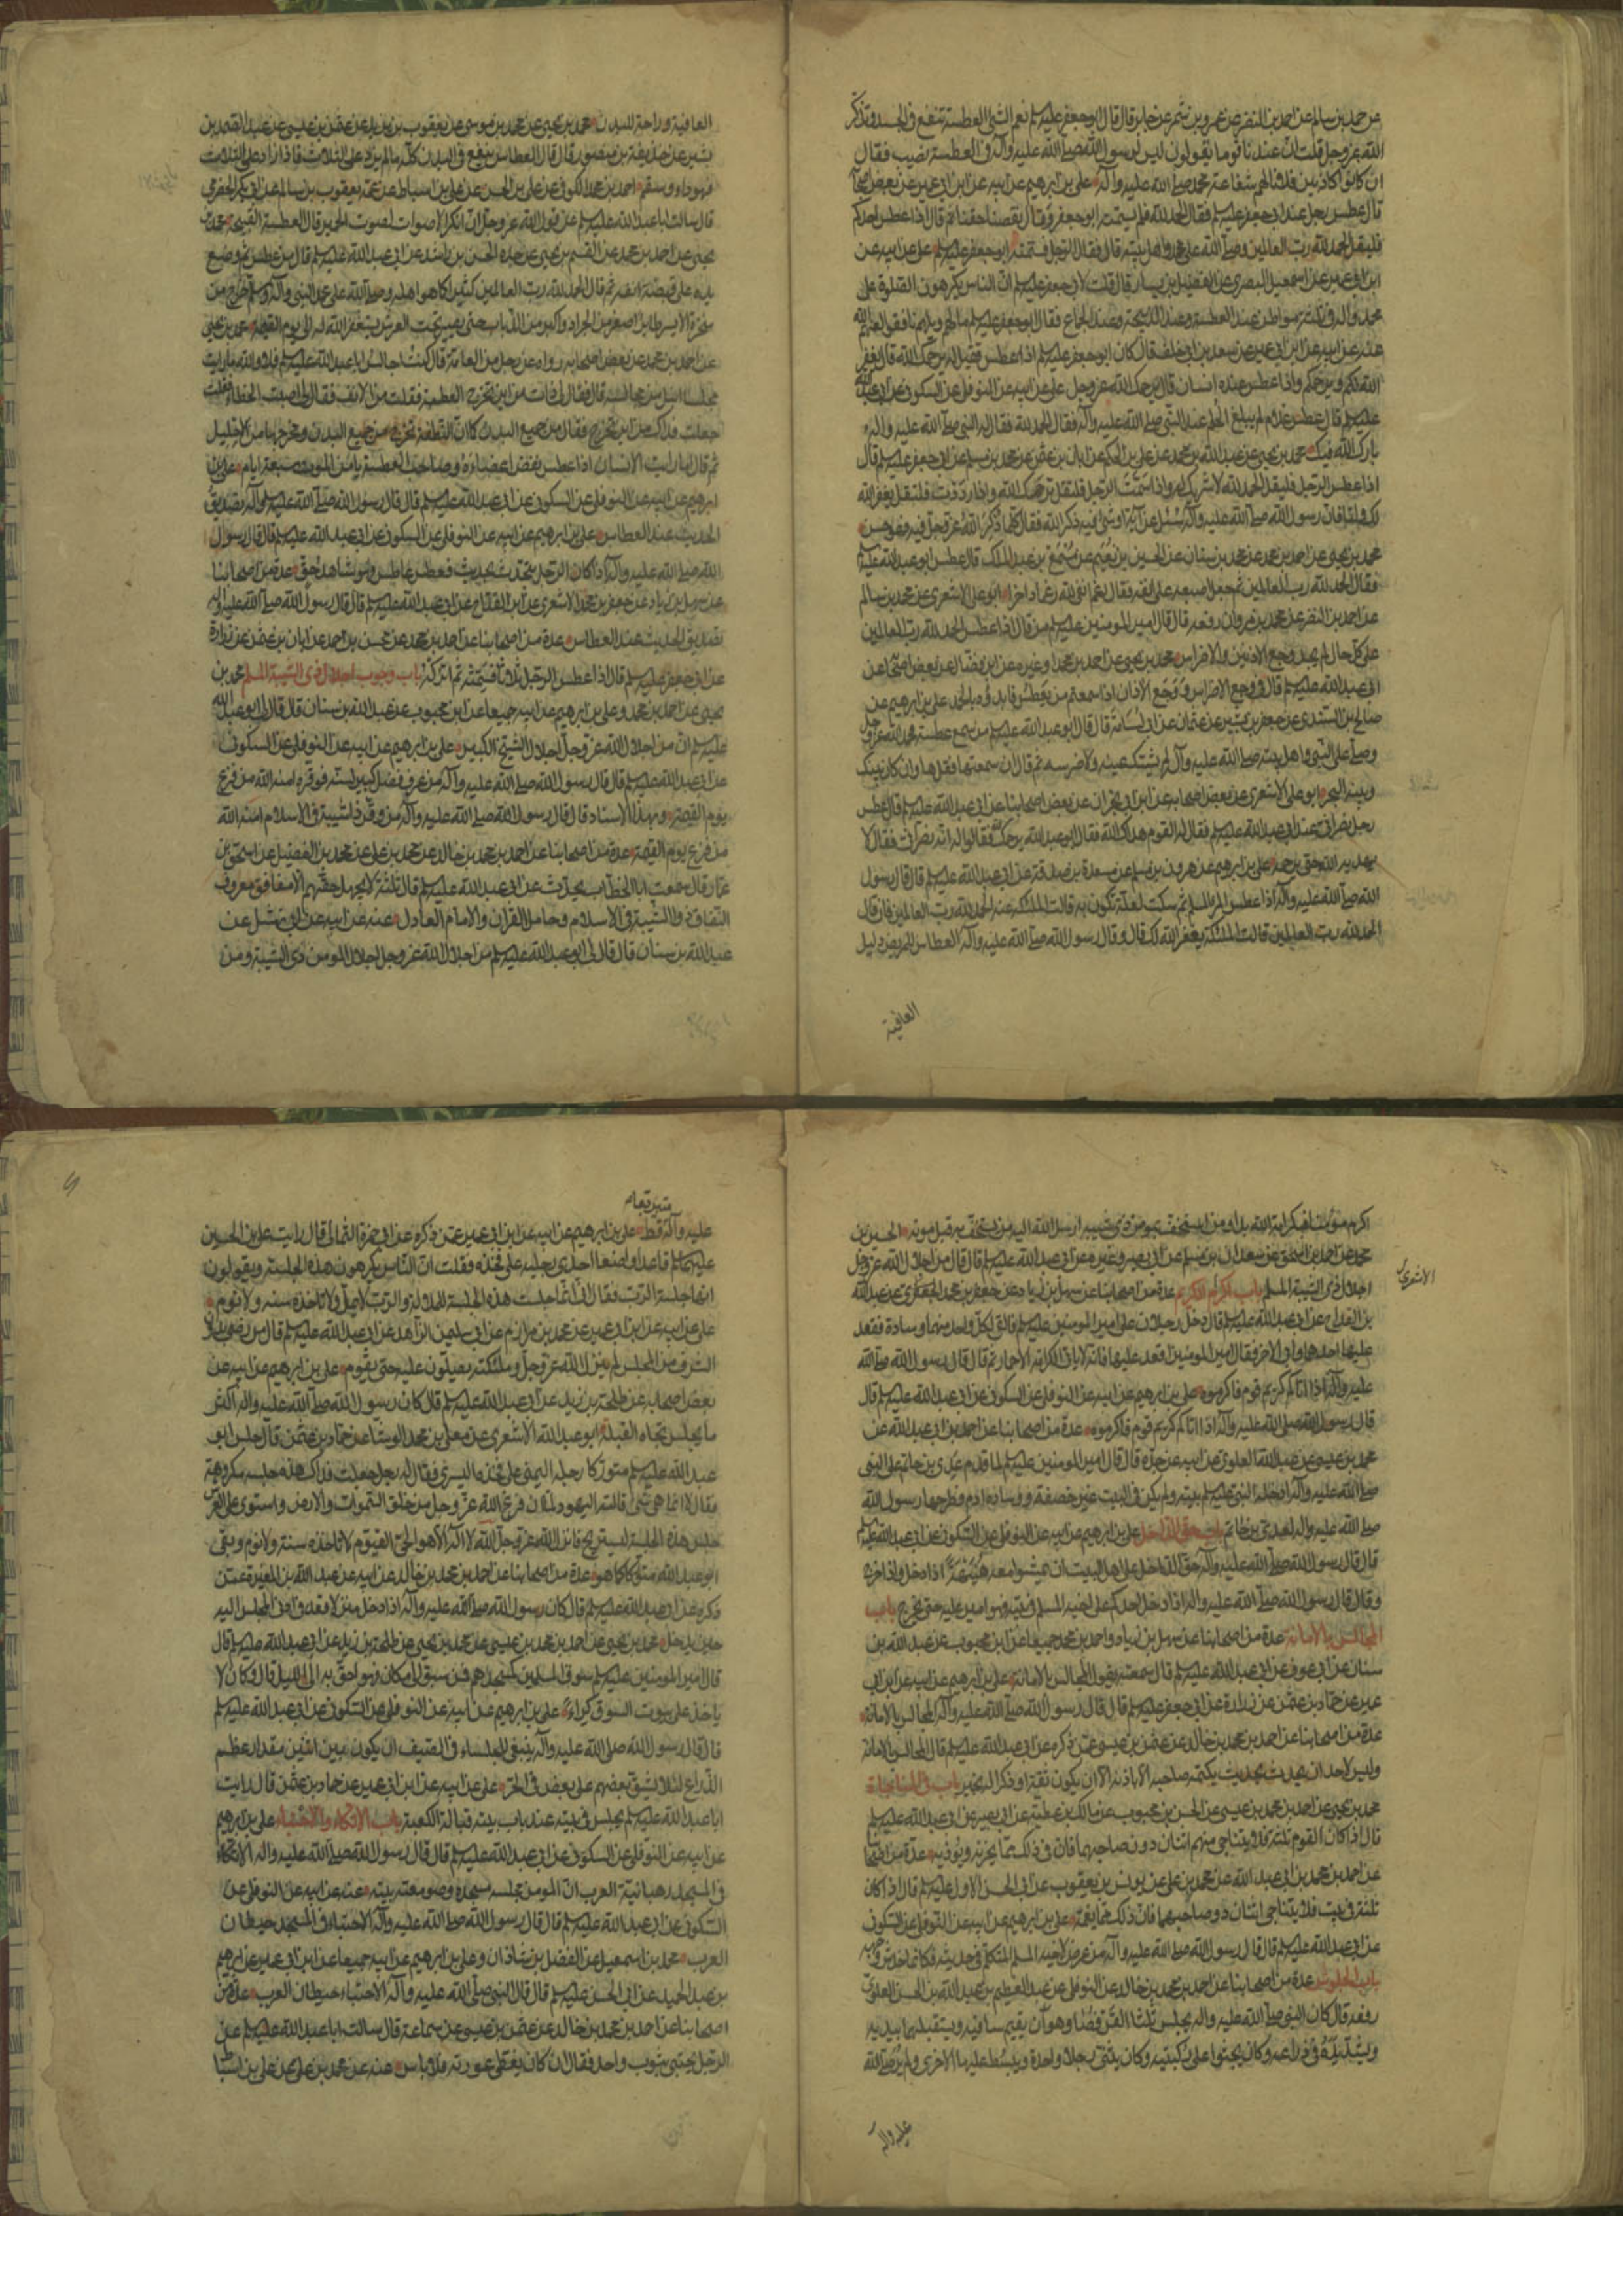 عن محمد بن سالم عن احمد بن النضر عن عمرو بن شمر عن جابر قال قال ابو جعفر عليه السلم نعم الشئ العطسة تنفع فى الجسد وتذكر
الله عز وجل قلت ان عندنا قوما يقولون ليس لرسول الله صلى الله عليه وآله فى العطسة نصيب فقال
ان كانوا كاذبين فلا نالهم شفاعة محمد صلى الله عليه وآله على بن ابرهيم عن ابيه عن ابن ابى عمير عن بعض اصحابه
قال عطس رجل عند ابى جعفر عليه السلم فقال الحمد لله فلم يسمته ابو جعفر وقال نقصنا حقنا ثم قال اذا عطس احدكم
فليقل الحمد لله رب العالمين وصلى الله على محمد واهل بيته قال فقال الرجل فسمته ابو جعفر عليه السلم على عن ابيه عن
ابن ابى عمير عن اسمعيل البصرى عن الفضيل بن يسار قال قلت لابى جعفر عليه السلم ان الناس يكرهون الصلوة على
محمد وآله فى ثلثة مواطن عند العطسة وعند الذبيحة وعند الجماع فقال ابو جعفر عليه السلم ما لهم ويلهم نافقوا لعنهم الله
عنه عن ابيه عن ابن ابى عمير عن سعد بن ابى خلف قال كان ابو جعفر عليه السلم اذا عطس فقيل له يرحمك الله قال يغفر
الله لكم ويرحمكم واذا عطس عنده انسان قال يرحمك الله عز وجل على عن ابيه عن النوفلى عن السكونى عن ابى عبد الله
عليه السلم قال عطس غلام لم يبلغ الحلم عند النبى صلى الله عليه وآله فقال الحمد لله فقال له النبى صلى الله عليه وآله
بارك الله فيك محمد بن يحيى عن عبد الله بن محمد عن على بن الحكم عن ابان بن عثمن عن محمد بن مسلم عن ابى جعفر عليه السلم قال
اذا عطس الرجل فليقل الحمد لله لا شريك له واذا سمت الرجل فليقل يرحمك الله واذا رددت فليقل يغفر الله
لك ولنا فان رسول الله صلى الله عليه وآله سئل عن آية او شئ فيه ذكر الله فقال كلما ذكر الله عز وجل فيه فهو حسن
محمد بن يحيى عن احمد بن محمد عن محمد بن سنان عن الحسين بن نعيم عن مسمع بن عبد الملك قال عطس ابو عبد الله عليه السلم
فقال الحمد لله رب العالمين ثم جعل اصبعه على انفه فقال رغم انفى لله رغما داخرا ابو على الاشعرى عن محمد بن سالم
عن احمد بن النضر عن محمد بن مروان رفعه قال قال امير المومنين عليه السلم من قال اذا عطس الحمد لله رب العالمين
على كل حال لم يجد وجع الاذنين والاضراس محمد بن يحيى عن احمد بن محمد او غيره عن ابن فضال عن بعض اصحابه عن
ابى عبد الله عليه السلم قال فى وجع الاضراس ووجع الاذان اذا سمعتم من يعطس فابدؤه بالحمد على بن ابرهيم عن
صالح بن السندى عن جعفر بن بشير عن عثمان عن ابى اسامة قال قال ابو عبد الله عليه السلم من سمع عطسة فحمد الله عز وجل
وصلى على النبى واهل بيته صلى الله عليه وآله لم يشتك عينه ولا ضرسه ثم قال ان سمعتها فقلها وان كان بينك
وبينه البحر ابو على الاشعرى عن بعض اصحابه عن ابن ابى نجران عن بعض اصحابنا عن ابى عبد الله عليه السلم قال عطس
رجل نصرانى عند ابى عبد الله عليه السلم فقال له القوم هداك الله فقال ابو عبد الله يرحمك الله فقالوا له انه نصرانى فقال لا
يهديه الله حتى يرحمه على بن ابرهيم عن هرون بن مسلم عن مسعدة بن صدقة عن ابى عبد الله عليه السلم قال قال رسول
الله صلى الله عليه وآله اذا عطس المرء المسلم ثم سكت لعلة تكون به قالت الملئكة عنه الحمد لله رب العالمين فان قال
الحمد لله رب العالمين قالت الملئكة يغفر الله لك قال وقال رسول الله صلى الله عليه وآله العطاس للمريض دليل
العافية
العافية وراحة للبدن محمد بن يحيى عن محمد بن موسى عن يعقوب بن يزيد عن عثمن بن عيسى عن عبد الصمد بن
بشير عن حذيفة بن منصور قال قال العطاس ينفع فى البدن كله ما لم يزد على الثلاث فاذا زاد على الثلاث
فهو داء وسقم احمد بن محمد الكوفى عن على بن الحسن عن على بن اسباط عن عمه يعقوب بن سالم عن ابى بكر الحضرمى
قال سالت ابا عبد الله عليه السلم عن قول الله عز وجل ان انكر الاصوات لصوت الحمير قال العطسة القبيحة محمد بن
يحيى عن احمد بن محمد عن القسم بن يحيى عن جده الحسن بن راشد عن ابى عبد الله عليه السلم قال من عطس ثم وضع
يده على قصبة انفه ثم قال الحمد لله رب العالمين كثيرا كما هو اهله وصلى الله على محمد النبى وآله وسلم خرج من
منخره الايسر طاير اصغر من الجراد واكبر من الذباب حتى يصير تحت العرش يستغفر الله له الى يوم القيمة محمد بن يحيى
عن احمد بن محمد عن بعض اصحابه رواه عن رجل من العامة قال كنت اجالس ابا عبد الله عليه السلم فلا والله ما رايت
مجلسا انبل من مجالسه قال فقال لى ذات من اين تخرج العطسة فقلت من الانف فقال لى اصبت الخطاء فقلت
جعلت فداك من اين تخرج فقال من جميع البدن كما ان النطفة تخرج من جميع البدن ومخرجها من الاحليل
ثم قال اما رايت الانسان اذا عطس نفض اعضاءه وصاحب العطسة يامن الموت سبعة ايام على بن
ابرهيم عن ابيه عن النوفلى عن السكونى عن ابى عبد الله عليه السلم قال قال رسول الله صلى الله عليه وآله تصديق
الحديث عند العطاس على بن ابرهيم عن ابيه عن النوفلى عن السكونى عن ابى عبد الله عليه السلم قال قال رسول
الله صلى الله عليه وآله اذا كان الرجل يتحدث بحديث فعطس عاطس فهو شاهد حق عدة من اصحابنا
عن سهل بن زياد عن جعفر بن محمد الاشعرى عن ابن القداح عن ابى عبد الله عليه السلم قال قال رسول الله صلى الله عليه وآله
تصديق الحديث عند العطاس عدة من اصحابنا عن احمد بن محمد عن محسن بن احمد عن ابان بن عثمن عن زرارة
عن ابى جعفر عليه السلم قال اذا عطس الرجل ثلاثا فسمته ثم اتركه باب وجوب اجلال ذى الشيبة المسلم محمد بن
يحيى عن احمد بن محمد وعلى بن ابرهيم عن ابيه جميعا عن ابن محبوب عن عبد الله بن سنان قال قال لى ابو عبد الله
عليه السلم ان من اجلال الله عز وجل اجلال الشيخ الكبير على بن ابرهيم عن ابيه عن النوفلى عن السكونى
عن ابى عبد الله عليه السلم قال قال رسول الله صلى الله عليه وآله من عرف فضل كبير لسنه فوقره امنه الله من فزع
يوم القيمة وبهذا الاسناد قال قال رسول الله صلى الله عليه وآله من وقر ذا شيبة فى الاسلام امنه الله
من فزع يوم القيمة عدة من اصحابنا عن احمد بن محمد بن خالد عن محمد بن على عن محمد بن الفضيل عن اسحق بن
عمار قال سمعت ابا الخطاب يحدث عن ابى عبد الله عليه السلم قال ثلثة لا يجهل حقهم الا منافق معروف
النفاق ذو الشيبة فى الاسلام وحامل القران والامام العادل عنه عن ابيه عن ابى نهشل عن
عبد الله بن سنان قال قال لى ابو عبد الله عليه السلم من اجلال الله عز وجل اجلال المومن ذى الشيبة ومن
اكرم مومنا فبكرامة الله بدا ومن استخف بمومن ذى شيبة ارسل الله اليه من يستخف به قبل موته الحسين بن
محمد عن احمد بن اسحق عن سعدان بن مسلم عن ابى بصير وغيره عن ابى عبد الله عليه السلم قال قال من اجلال الله عز وجل
اجلال ذى الشيبة المسلم باب اكرام الكريم عدة من اصحابنا عن سهل بن زياد عن جعفر بن محمد الاشعرى عن عبد الله
الاشعرى
بن القداح عن ابى عبد الله عليه السلم قال دخل رجلان على امير المومنين عليه السلم فالقى لكل واحد منهما وسادة فقعد
عليها احدهما وابى الاخر فقال امير المومنين اقعد عليها فانه لا يابى الكرامة الا حمار ثم قال قال رسول الله صلى الله
عليه وآله اذا اتاكم كريم قوم فاكرموه على بن ابرهيم عن ابيه عن النوفلى عن السكونى عن ابى عبد الله عليه السلم قال
قال رسول الله صلى الله عليه وآله اذا اتاكم كريم قوم فاكرموه عدة من اصحابنا عن احمد بن ابى عبد الله عن
محمد بن عيسى عن عبد الله العلوى عن ابيه عن جده قال قال امير المومنين عليه السلم لما قدم عدى بن حاتم على النبى
صلى الله عليه وآله ادخله النبى عليه السلم بيته ولم يكن فى البيت غير خصفة ووسادة ادم فطرحها رسول الله
صلى الله عليه وآله لعدى بن حاتم باب حق الداخل على بن ابرهيم عن ابيه عن النوفلى عن السكونى عن ابى عبد الله عليه السلم
قال قال رسول الله صلى الله عليه وآله حق الداخل على اهل البيت ان يمشوا معه هنيئة اذا دخل واذا خرج
وقال قال رسول الله صلى الله عليه وآله اذا دخل احدكم على اخيه المسلم فى بيته فهو امير عليه حتى يخرج باب
المجالس بالامانة عدة من اصحابنا عن سهل بن زياد واحمد بن محمد جميعا عن ابن محبوب عن عبد الله بن
سنان عن ابن عوف عن ابى عبد الله عليه السلم قال سمعته يقول المجالس بالامانة على بن ابرهيم عن ابيه عن ابن ابى
عمير عن حماد بن عثمن عن زرارة عن ابى جعفر عليه السلم قال قال رسول الله صلى الله عليه وآله المجالس بالامانة
عدة من اصحابنا عن احمد بن محمد بن خالد عن عثمن بن عيسى عمن ذكره عن ابى عبد الله عليه السلم قال المجالس بالامانة
وليس لاحد ان يحدث بحديث يكتمه صاحبه الا باذنه الا ان يكون ثقة او ذكرا له بخير باب فى المناجاة
محمد بن يحيى عن احمد بن محمد بن عيسى عن الحسن بن محبوب عن مالك بن عطية عن ابى بصير عن ابى عبد الله عليه السلم
قال اذا كان القوم ثلثة فلا يتناجى منهم اثنان دون صاحبهما فان فى ذلك مما يحزنه ويوذيه عدة من اصحابنا
عن احمد بن محمد بن ابى عبد الله عن محمد بن على عن يونس بن يعقوب عن ابى الحسن الاول عليه السلم قال اذا كان
ثلثة فى بيت فلا يتناجى اثنان دون صاحبهما فان ذلك مما يغمه على بن ابرهيم عن ابيه عن النوفلى عن السكونى
عن ابى عبد الله عليه السلم قال قال رسول الله صلى الله عليه وآله من عرض لاخيه المسلم المتكلم فى حديثه فكانما خدش وجهه
باب الجلوس عدة من اصحابنا عن احمد بن محمد بن خالد عن النوفلى عن عبد العظيم بن عبد الله بن الحسن العلوى
رفعه قال كان النبى صلى الله عليه وآله يجلس ثلثا القرفصا وهو ان يقيم ساقيه ويستقبلهما بيديه
ويشد يده فى ذراعه وكان يجثوا على ركبتيه وكان يثنى رجلا واحدة ويبسط عليها الاخرى ولم ير صلى الله
عليه وآله
متربعا
عليه وآله قط على بن ابرهيم عن ابيه عن ابن ابى عمير عمن ذكره عن ابى حمزة الثمالى قال رايت على بن الحسين
عليهما السلم قاعدا واضعا احدى رجليه على فخذه فقلت ان الناس يكرهون هذه الجلسة ويقولون
انها جلسة الرب فقال انى انما جلست هذه الجلسة للملالة والرب لا يمل ولا تاخذه سنة ولا نوم
على عن ابيه عن ابن ابى عمير عن محمد بن مرازم عن ابى سليمن الزاهد عن ابى عبد الله عليه السلم قال من رضى بدون
الشرف من المجلس لم يزل الله عز وجل وملئكته يصلون عليه حتى يقوم على بن ابرهيم عن ابيه عن
بعض اصحابه عن طلحة بن زيد عن ابى عبد الله عليه السلم قال كان رسول الله صلى الله عليه وآله اكثر
ما يجلس تجاه القبلة ابو عبد الله الاشعرى عن معلى بن محمد الوشاء عن حماد بن عثمن قال جلس ابو
عبد الله عليه السلم متوركا رجله اليمنى على فخذه اليسرى فقال له رجل جعلت فداك هذه جلسة مكروهة
فقال لا انما هى شئ قالته اليهود لما ان فرغ الله عز وجل من خلق السموات والارض واستوى على العرش
جلس هذه الجلسة ليستريح فانزل الله عز وجل الله لا اله الا هو الحى القيوم لا تاخذه سنة ولا نوم وبقى
ابو عبد الله متوركا كما هو عدة من اصحابنا عن احمد بن محمد بن خالد عن ابيه عن عبد الله بن المغيرة عمن
ذكره عن ابى عبد الله عليه السلم قال كان رسول الله صلى الله عليه وآله اذا دخل منزلا قعد فى ادنى المجلس اليه
حين يدخل محمد بن يحيى عن احمد بن محمد بن عيسى عن محمد بن يحيى عن طلحة بن زيد عن ابى عبد الله عليه السلم قال
قال امير المومنين عليه السلم سوق المسلمين كمسجدهم فمن سبق الى مكان فهو احق به الى الليل قال وكان لا
ياخذ على بيوت السوق كراء على بن ابرهيم عن ابيه عن النوفلى عن السكونى عن ابى عبد الله عليه السلم
قال قال رسول الله صلى الله عليه وآله ينبغى للجلساء فى الصيف ان يكون بين اثنين مقدار عظم
الذراع لئلا يشق بعضهم على بعض فى الحر على عن ابيه عن ابن ابى عمير عن حماد بن عثمن قال رايت
ابا عبد الله عليه السلم يجلس فى بيته عند باب بيته قبالة الكعبة باب الاتكاء والاحتباء على بن ابرهيم
عن ابيه عن النوفلى عن السكونى عن ابى عبد الله عليه السلم قال قال رسول الله صلى الله عليه وآله الاتكاء
فى المسجد رهبانية العرب ان المومن مجلسه مسجده وصومعته بيته عنه عن ابيه عن النوفلى عن
السكونى عن ابى عبد الله عليه السلم قال قال رسول الله صلى الله عليه وآله الاحتباء فى المسجد حيطان
العرب محمد بن اسمعيل عن الفضل بن شاذان وعلى بن ابرهيم عن ابيه جميعا عن ابن ابى عمير عن ابرهيم
بن عبد الحميد عن ابى الحسن عليه السلم قال قال النبى صلى الله عليه وآله الاحتباء حيطان العرب عدة من
اصحابنا عن احمد بن محمد بن خالد عن عثمن بن عيسى عن سماعة قال سالت ابا عبد الله عليه السلم عن
الرجل يحتبى بثوب واحد فقال ان كان يغطى عورته فلا باس عنه عن محمد بن على عن على بن اسباط